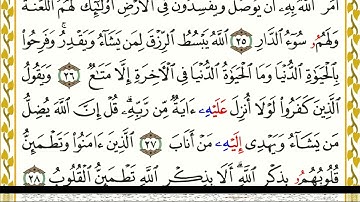 أَمَرَ ٱللَّهُ بِهِۦٓ أَن يُوصَلَ وَيُفْسِدُونَ فِى ٱلْأَرْضِ أُو۟لَٰٓئِكَ لَهُمُ ٱللَّعْنَةُ
وَلَهُمُۥ سُوٓءُ ٱلدَّارِ ٢٥ ٱللَّهُ يَبْسُطُ ٱلرِّزْقَ لِمَن يَشَآءُ وَيَقْدِرُ وَفَرِحُوا۟
بِٱلْحَيَوٰةِ ٱلدُّنْيَا وَمَا ٱلْحَيَوٰةُ ٱلدُّنْيَا فِى ٱلْءَاخِرَةِ إِلَّا مَتَٰعٌ ٢٦ وَيَقُولُ
ٱلَّذِينَ كَفَرُوا۟ لَوْلَآ أُنزِلَ عَلَيْهِۦ ءَايَةٌ مِّن رَّبِّهِۦ قُلْ إِنَّ ٱللَّهَ يُضِلُّ
مَن يَشَآءُ وَيَهْدِىٓ إِلَيْهِۦ مَنْ أَنَابَ ٢٧ ٱلَّذِينَ ءَامَنُوا۟ وَتَطْمَئِنُّ
قُلُوبُهُمُۥ بِذِكْرِ ٱللَّهِ أَلَا بِذِكْرِ ٱللَّهِ تَطْمَئِنُّ ٱلْقُلُوبُ ٢٨